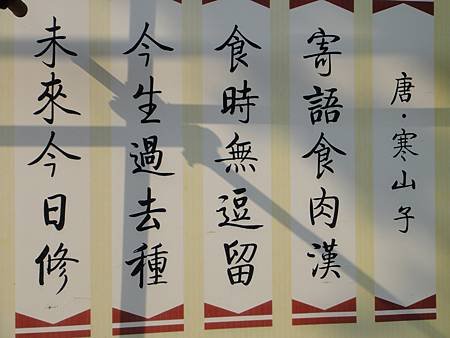 唐·寒山子
寄語食肉漢
食時無逗留
今生過去種
未來今日修